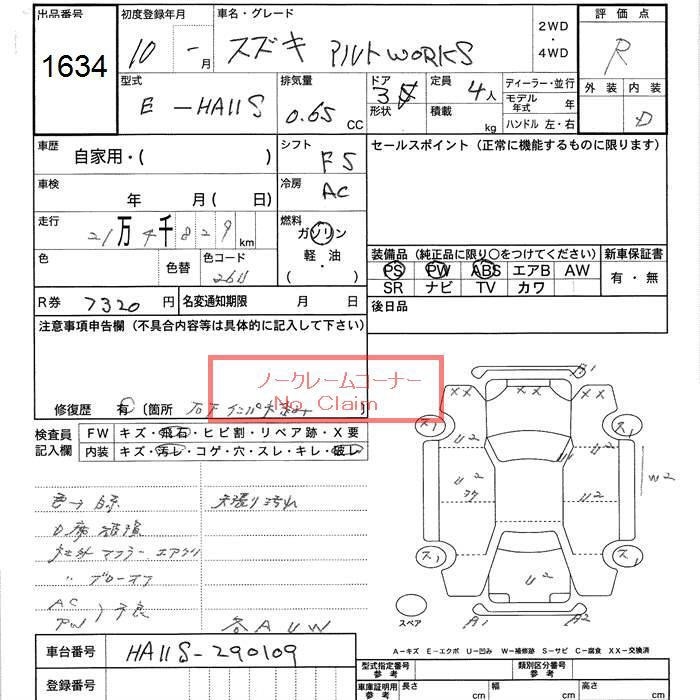 出品番号 初度登録年月 車名・グレード 2WD・4WD 評価点
1634 10 - 月 スズキ アルト WORKS R
型式 排気量 ドア形状 定員 ディーラー・並行 外装 内装
E - HA11S 0.65 CC 3 積載 4人 kg モデル年式 年 D
ハンドル 左・右
車歴 自家用・( ) シフト F5 セールスポイント(正常に機能するものに限ります)
車検 年 月 ( 日) 冷房 AC
走行 21万4千829 km 燃料 ガソリン 軽油 ( )
色 色替 色コード 26U
装備品(純正品に限り○をつけてください) 新車保証書
PS PW ABS エアB AW 有・無
SR ナビ TV カワ
R券 7320 円 名変通知期限 月 日 後日品
注意事項申告欄(不具合内容等は具体的に記入して下さい)
ノークレームコーナー
No Claim
修復歴 有 (箇所 )
検査員記入欄 FW キズ・飛石・ヒビ割・リペア跡・X要
内装 キズ・汚レ・コゲ・穴・スレ・キレ・破レ
天張り汚れ
D席破損
社外マフラー エアクリ
〃 ブローオフ
AC PW 不良
各 A U W
A1 XX XX XX
U2 U2 W2
U2
A2
スペア
A-キズ E-エクボ U-凹み W-補修跡 S-サビ C-腐食 XX-交換済
車台番号 HA11S-290109
登録番号
型式指定番号 参考 類別区分番号 参考
車庫証明用 参考 長さ cm 幅 cm 高さ cm